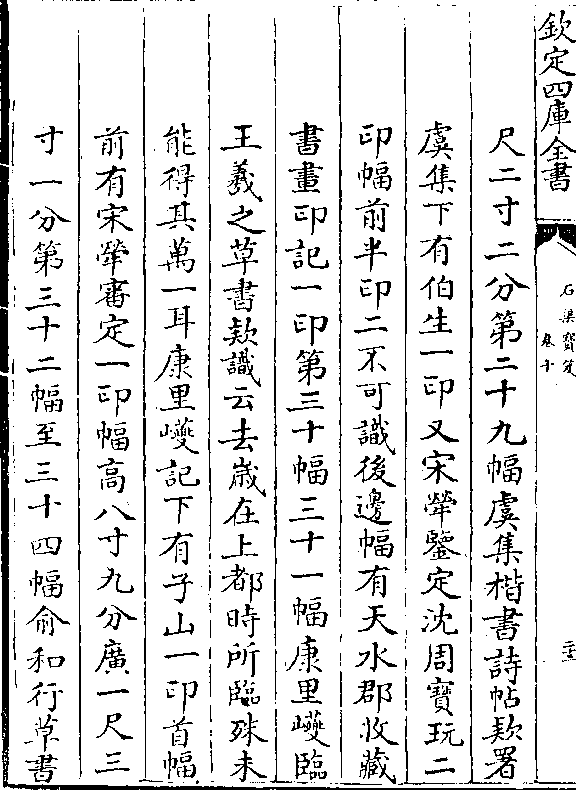 欽定四庫全書
石渠寶笈
卷十
二十三
尺二寸二分第二十九幅虞集楷書詩帖欵署
虞集下有伯生一印又宋犖鑒定沈周寶玩二
印幅前半印二不可識後邊幅有天水郡收藏
書畫印記一印第三十幅三十一幅康里巙臨
王羲之草書欵識云去歲在上都時所臨殊未
能得其萬一耳康里巙記下有子山一印首幅
前有宋犖審定一印幅高八寸九分廣一尺三
寸一分第三十二幅至三十四幅俞和行草書